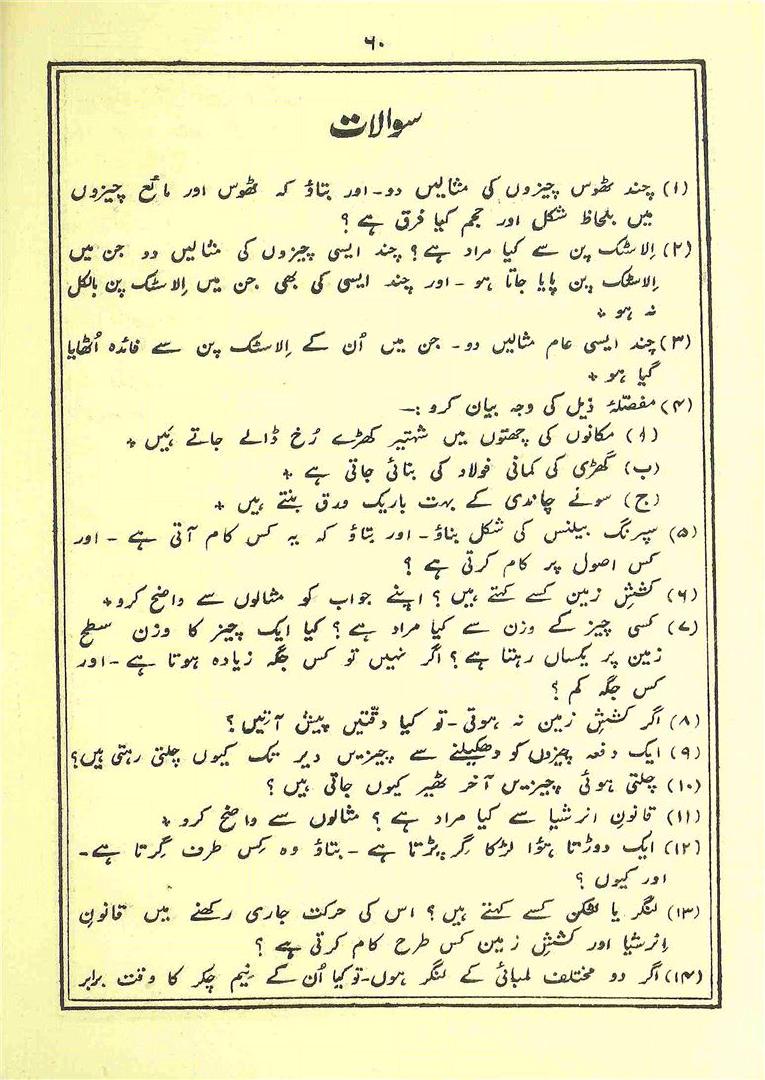 ۶۰
سوالات
(۱) چند ٹھوس چیزوں کی مثالیں دو۔ اور بتاؤ کہ ٹھوس اور مائع چیزوں
میں بلحاظ شکل اور حجم کیا فرق ہے ؟
(۲) اِلاسٹک پن سے کیا مراد ہے ؟ چند ایسی چیزوں کی مثالیں دو جن میں
اِلاسٹک پن پایا جاتا ہو ۔ اور چند ایسی کی بھی جن میں اِلاسٹک پن بالکل
نہ ہو ٭
(۳) چند ایسی عام مثالیں دو۔ جن میں اُن کے اِلاسٹک پن سے فائدہ اُٹھایا
گیا ہو ٭
(۴) مفصّلۂ ذیل کی وجہ بیان کرو :۔
(ا) مکانوں کی چھتوں میں شہتیر کھڑے رُخ ڈالے جاتے ہیں ٭
(ب) گھڑی کی کمانی فولاد کی بنائی جاتی ہے ٭
(ج) سونے چاندی کے بہت باریک ورق بنتے ہیں ٭
(۵) سپرنگ بیلنس کی شکل بناؤ ۔ اور بتاؤ کہ یہ کس کام آتی ہے ۔ اور
کس اصول پر کام کرتی ہے ؟
(۶) کششِ زمین کسے کہتے ہیں ؟ اپنے جواب کو مثالوں سے واضح کرو ٭
(۷) کسی چیز کے وزن سے کیا مراد ہے ؟ کیا ایک چیز کا وزن سطح
زمین پر یکساں رہتا ہے ؟ اگر نہیں تو کس جگہ زیادہ ہوتا ہے ۔ اور
کس جگہ کم ؟
(۸) اگر کششِ زمین نہ ہوتی ۔ تو کیا دقّتیں پیش آتیں ؟
(۹) ایک دفعہ چیزوں کو دھکیلنے سے چیزیں دیر تک کیوں چلتی رہتی ہیں؟
(۱۰) چلتی ہوئی چیزیں آخر ٹھیر کیوں جاتی ہیں ؟
(۱۱) قانونِ انرشیا سے کیا مراد ہے ؟ مثالوں سے واضح کرو ٭
(۱۲) ایک دوڑتا ہؤا لڑکا گر پڑتا ہے ۔ بتاؤ وہ کِس طرف گِرتا ہے ۔
اور کیوں ؟
(۱۳) لنگر یا لٹکن کسے کہتے ہیں ؟ اس کی حرکت جاری رکھنے میں قانونِ
اِنرشیا اور کششِ زمین کس طرح کام کرتی ہے ؟
(۱۴) اگر دو مختلف لمبائی کے لنگر ہوں۔ تو کیا اُن کے نِیم چکر کا وقت برابر